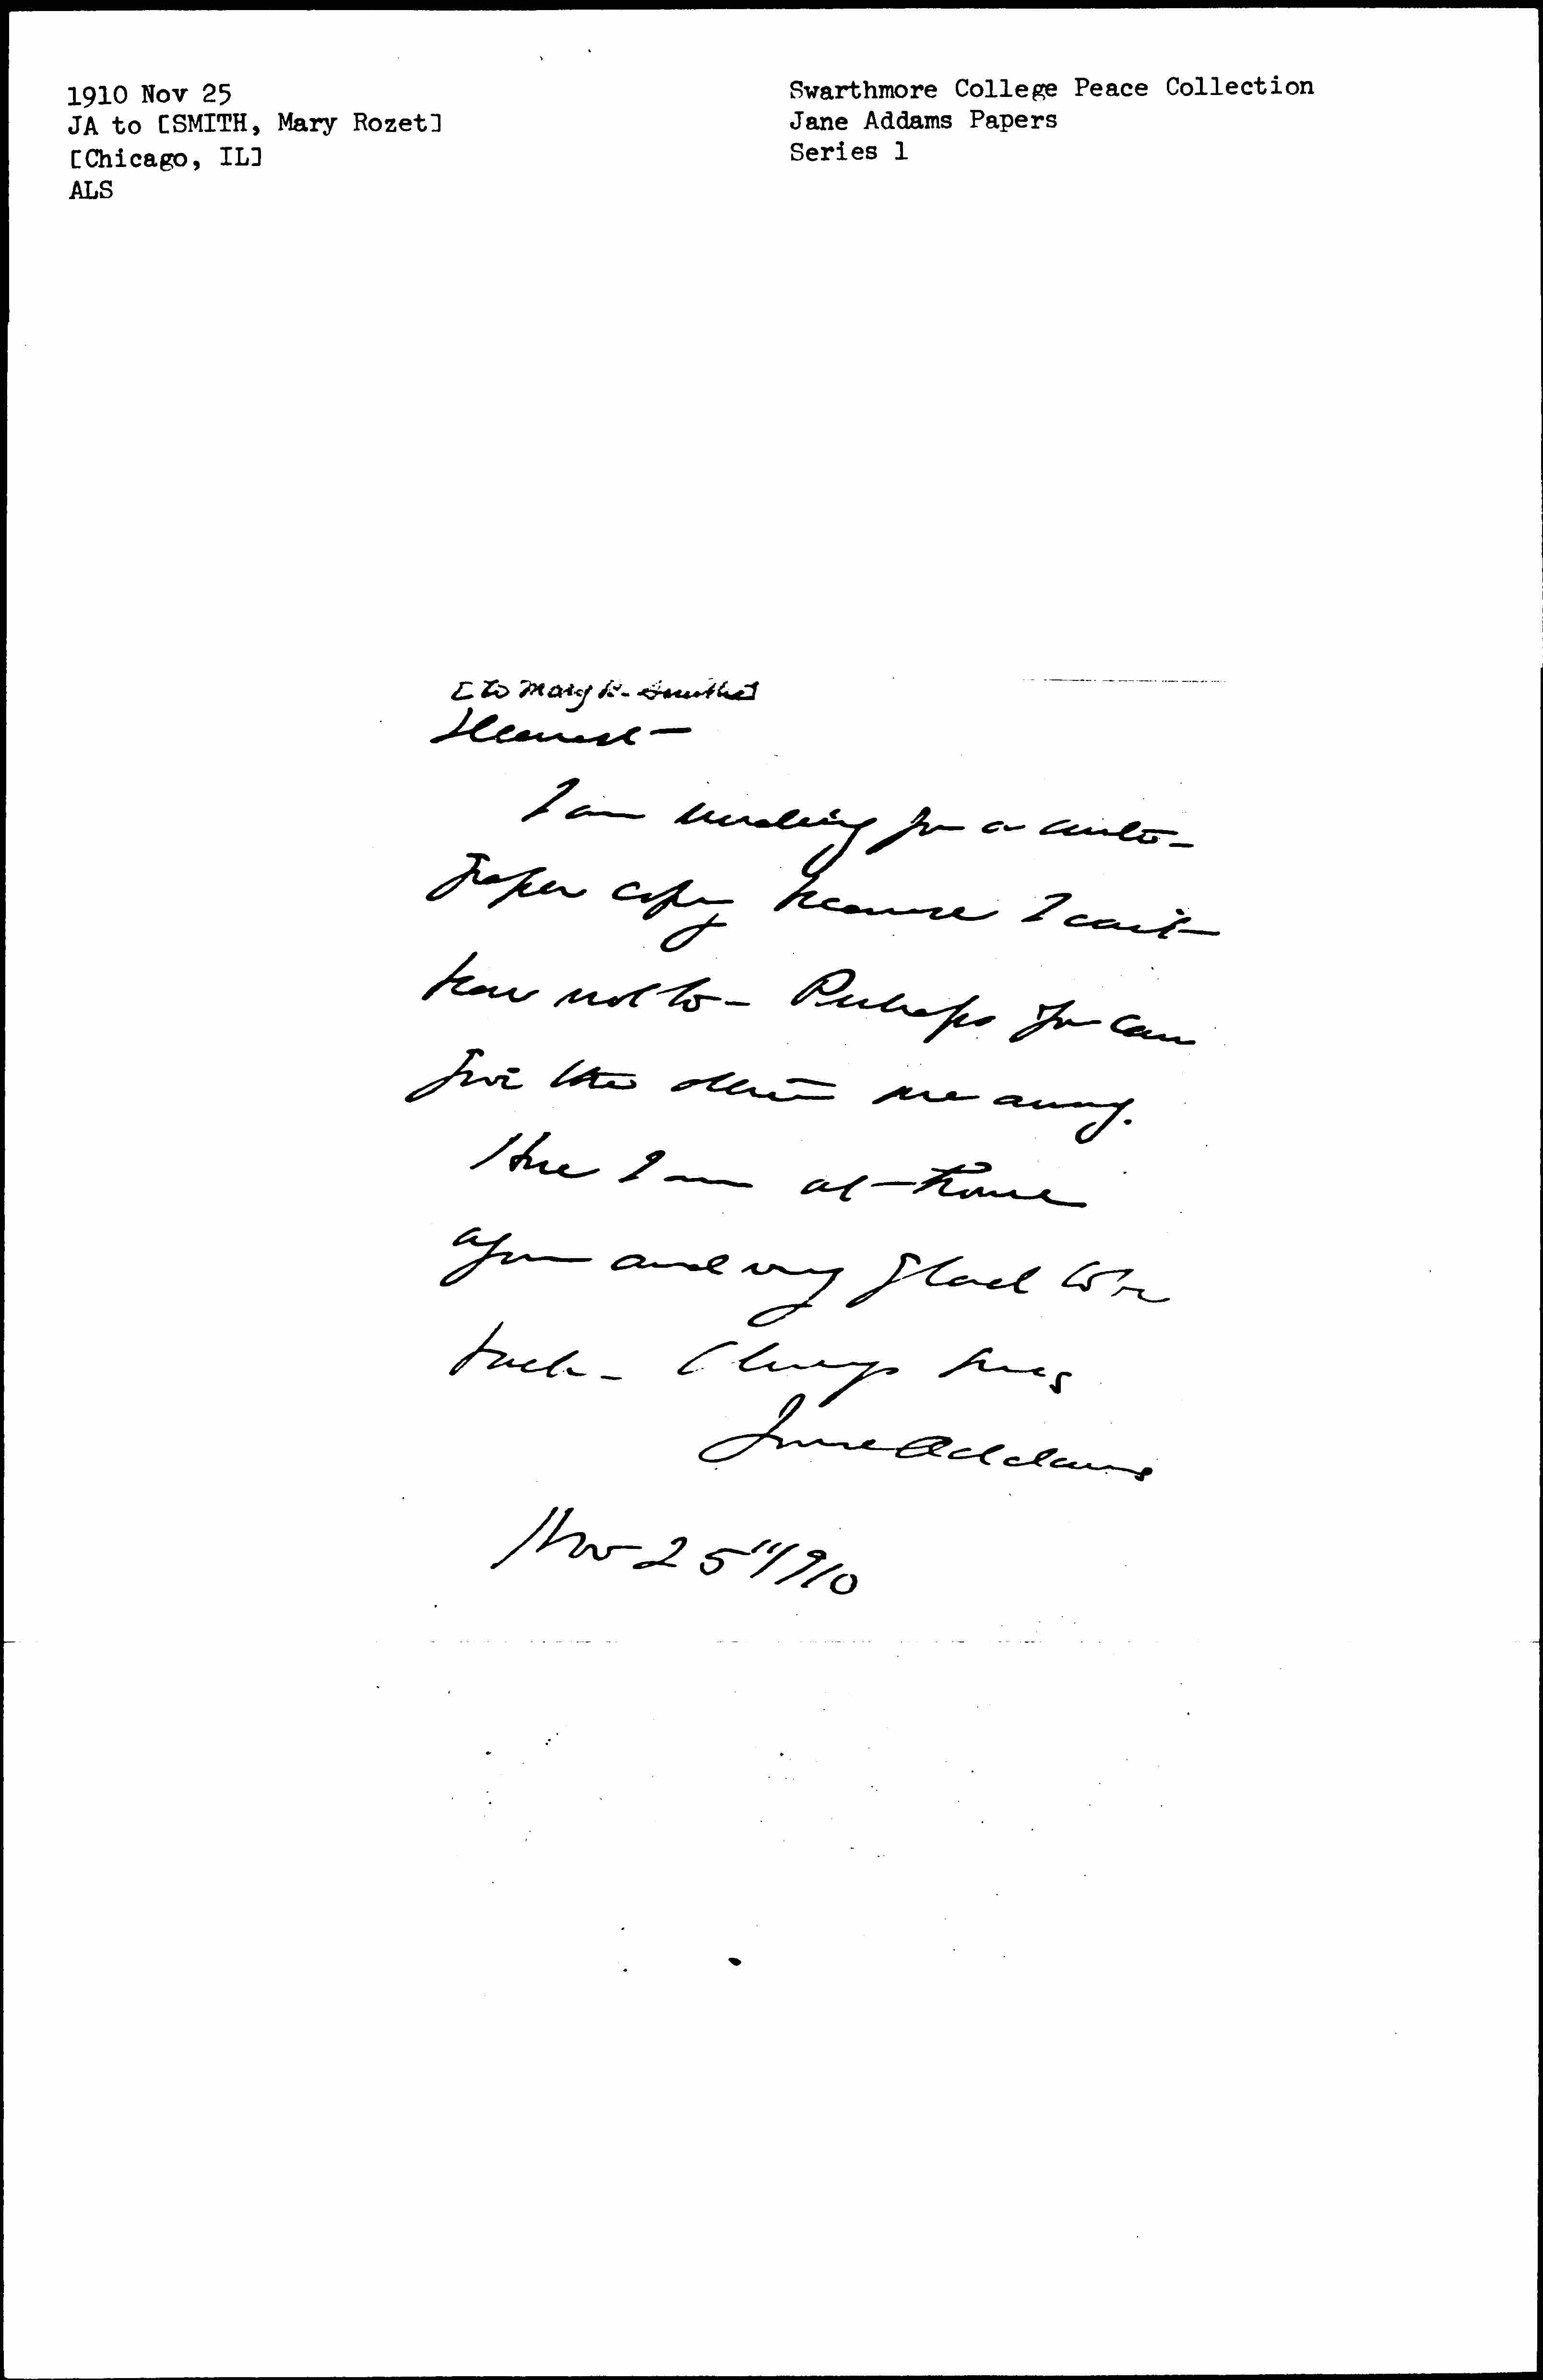 1910 Nov 25
JA to [SMITH, Mary Rozet]
[Chicago, IL]
ALS
Swarthmore College Peace Collection
Jane Addams Papers
Series 1
[to Mary R. Smith]
Dearest —
I am sending you a auto-
copy because I can't
bear not to — Perhaps you can
give the other one away.
Here I am at home
again and very glad to be
back — Always yours
Jane Addams
Nov 25" 1910